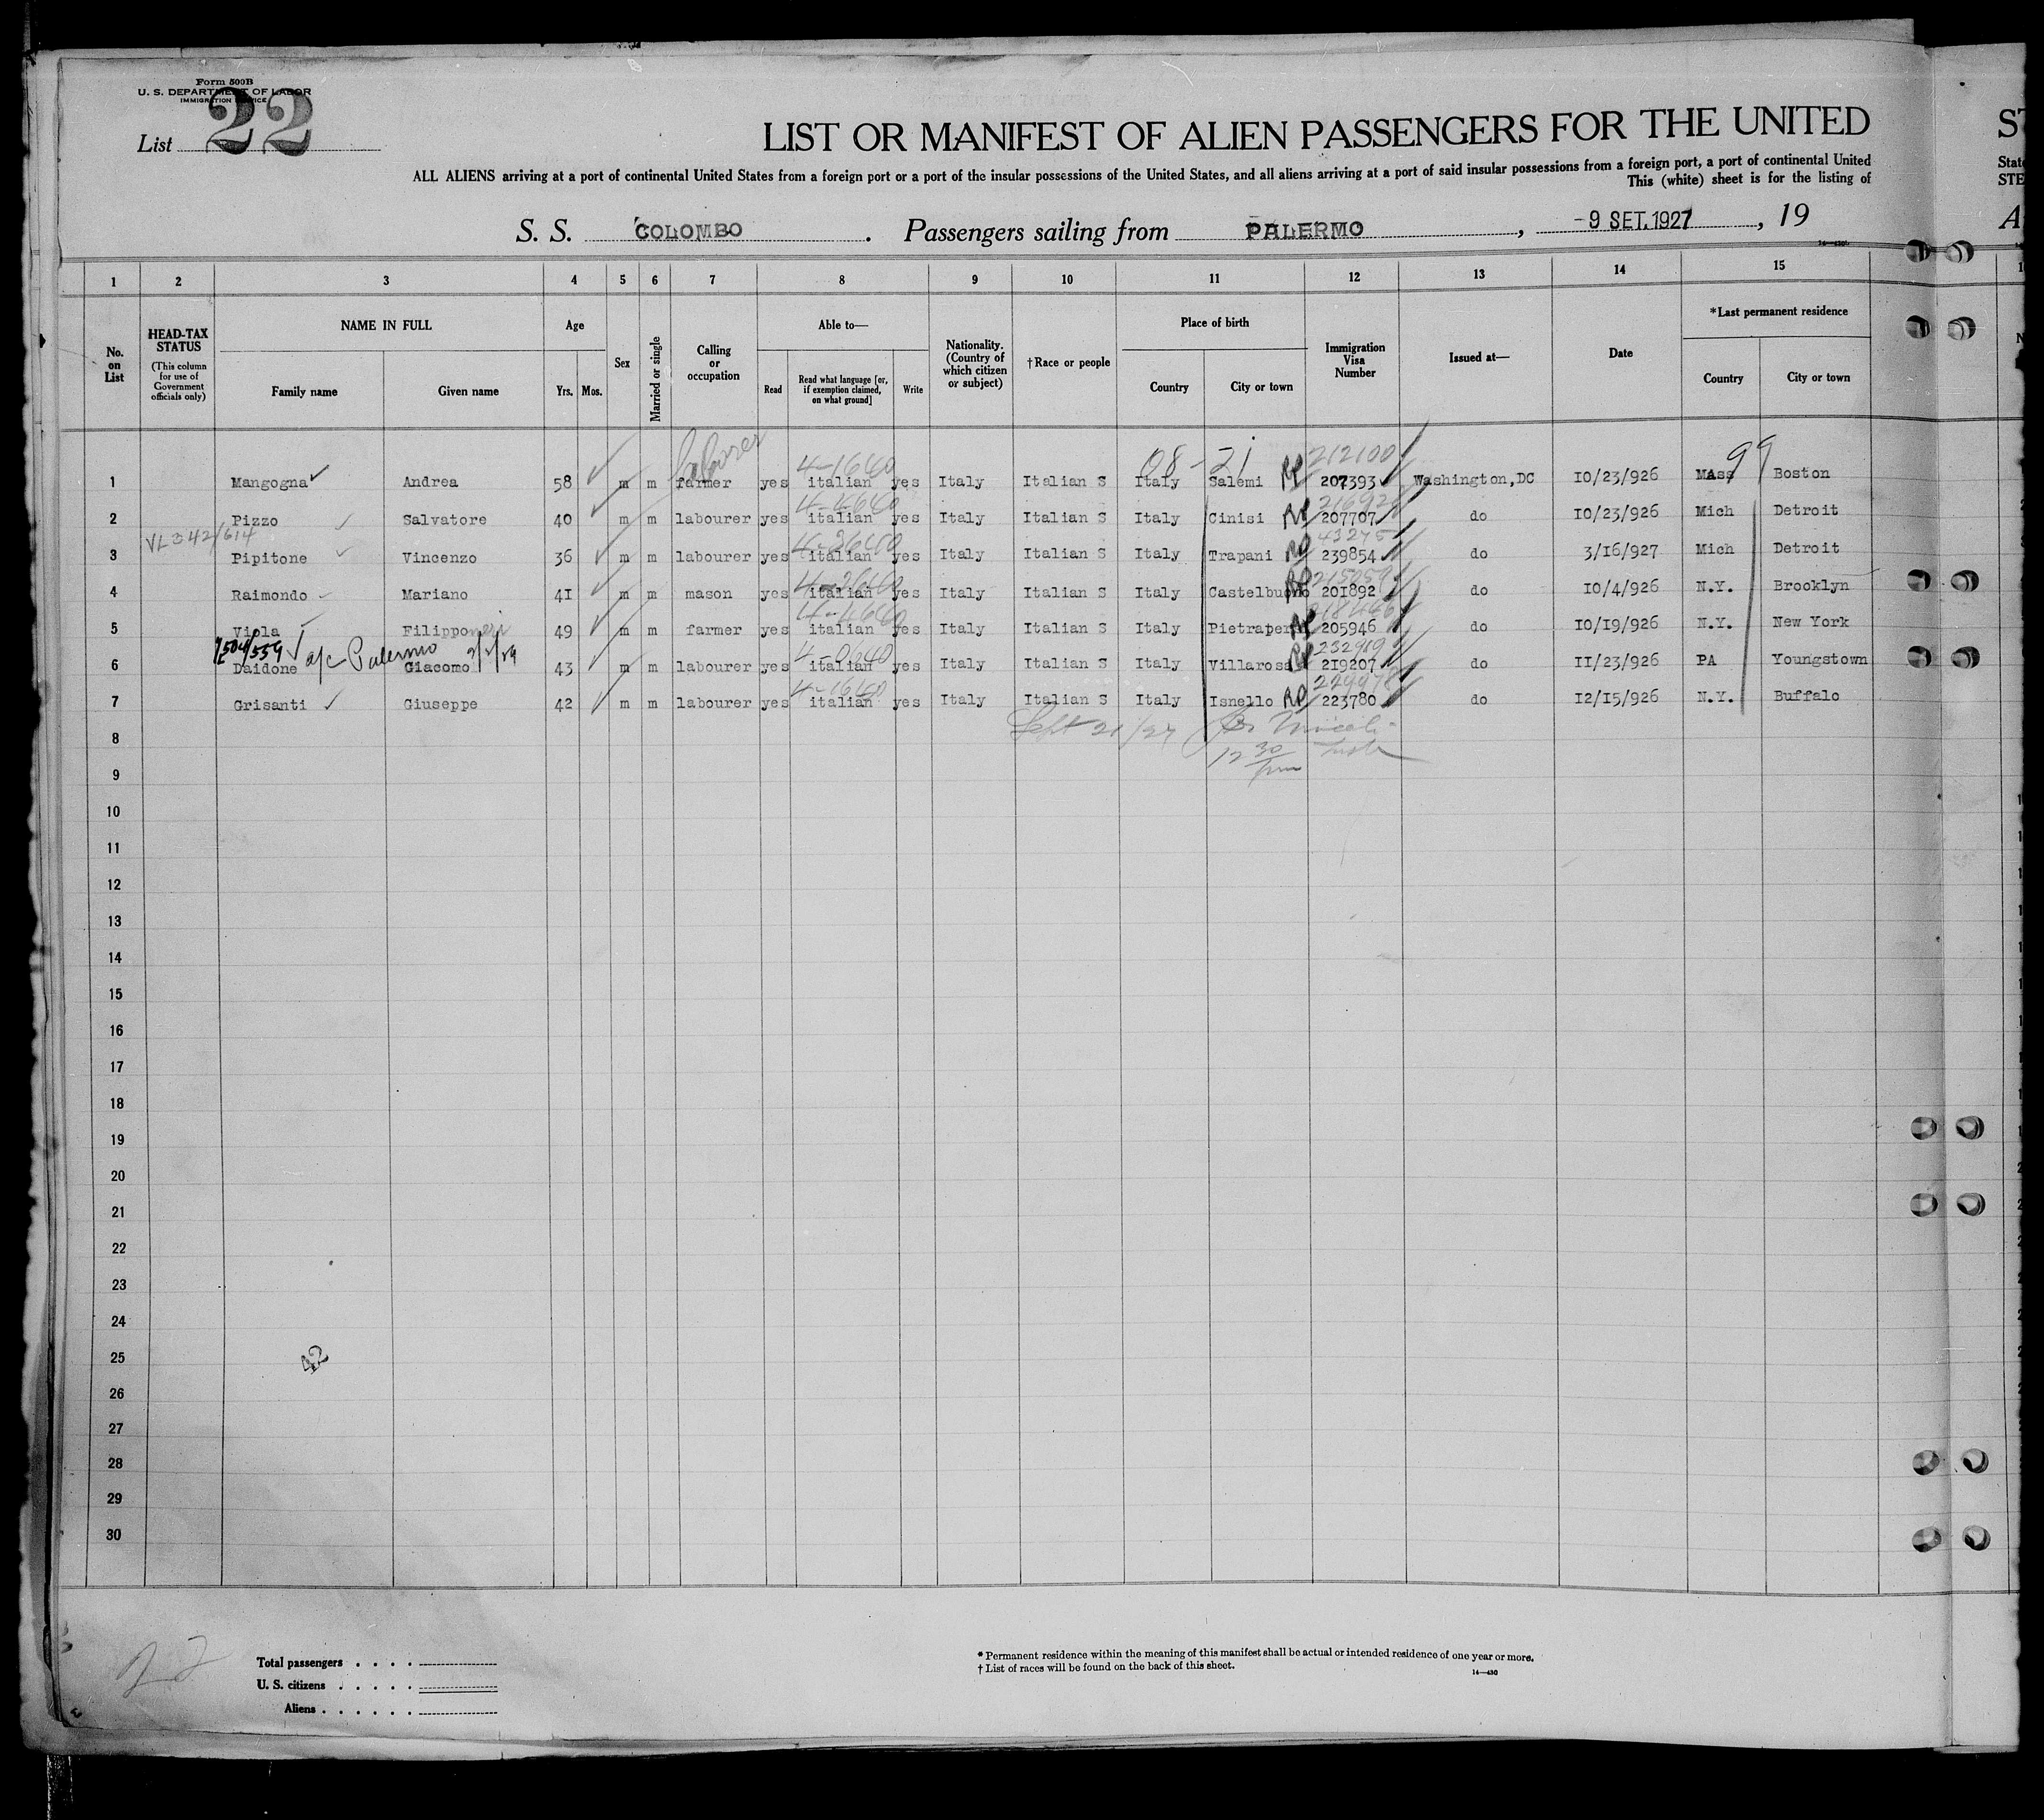 Form 500B
U. S. DEPARTMENT OF LABOR
IMMIGRATION SERVICE
List 22
LIST OR MANIFEST OF ALIEN PASSENGERS FOR THE UNITED
ALL ALIENS arriving at a port of continental United States from a foreign port or a port of the insular possessions of the United States, and all aliens arriving at a port of said insular possessions from a foreign port, a port of continental United
This (white) sheet is for the listing of
S. S. COLOMBO. Passengers sailing from PALERMO, -9 SET.1927, 19
14-430
1 2 3 4 5 6 7 8 9 10 11 12 13 14 15
No. on List
HEAD-TAX STATUS
(This column for use of Government officials only)
NAME IN FULL
Family name Given name
Age
Yrs. Mos.
Sex
Married or single
Calling or occupation
Able to—
Read
Read what language [or, if exemption claimed, on what ground]
Write
Nationality. (Country of which citizen or subject)
†Race or people
Place of birth
Country City or town
Immigration Visa Number
Issued at—
Date
*Last permanent residence
Country City or town
labourer 4-1640 08-21 212100 99
1 Mangogna Andrea 58 m m farmer yes italian yes Italy Italian S Italy Salemi RP 207393 Washington,DC 10/23/926 Mass Boston
4-4640
2 Pizzo Salvatore 40 m m labourer yes italian yes Italy Italian S Italy Cinisi RP 207707 do 10/23/926 Mich Detroit
VL 342/614 4-2640 43275
3 Pipitone Vincenzo 36 m m labourer yes italian yes Italy Italian S Italy Trapani RP 239854 do 3/16/927 Mich Detroit
4-2640 215059
4 Raimondo Mariano 41 m m mason yes italian yes Italy Italian S Italy Castelbuono RP 201892 do 10/4/926 N.Y. Brooklyn
4-4640 218446
5 Viola Filippo 49 m m farmer yes italian yes Italy Italian S Italy Pietraper RP 205946 do 10/19/926 N.Y. New York
a/c Palermo 4-0640 232919
6 Daidone Giacomo 43 m m labourer yes italian yes Italy Italian S Italy Villarosa RP 219207 do 11/23/926 PA Youngstown
4-1640 229978
7 Grisanti Giuseppe 42 m m labourer yes italian yes Italy Italian S Italy Isnello RP 223780 do 12/15/926 N.Y. Buffalo
Sept 21/27
8
12 30
9
10
11
12
13
14
15
16
17
18
19
20
21
22
23
24
25
42
26
27
28
29
30
22
Total passengers . . . .
U. S. citizens . . . . .
Aliens . . . . . .
* Permanent residence within the meaning of this manifest shall be actual or intended residence of one year or more.
† List of races will be found on the back of this sheet.
14-430